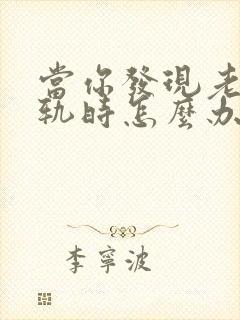 當你發現老
軌時怎麼办
李寧波